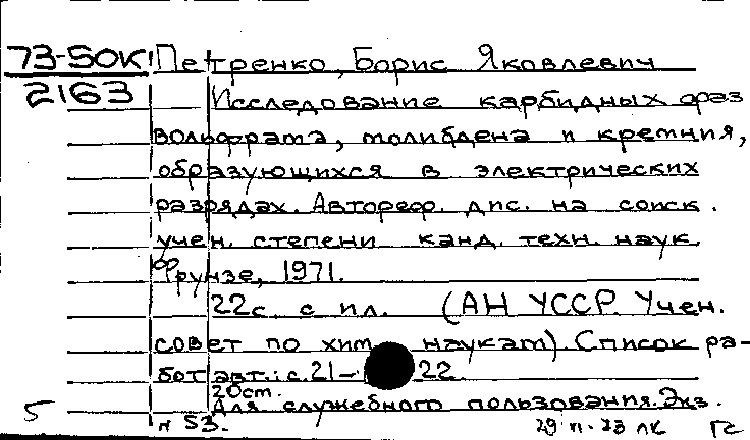 73-50К Петренко, Борис Яковлевич
2163 Исследование карбидных фаз
вольфрама, молибдена и кремния,
образующихся в электрических
разрядах. Автореф. дис. на соиск.
учен. степени канд. техн. наук.
Фрунзе, 1971.
22с. с ил. (АН УССР. Учен.
совет по хим. наукам). Список ра-
бот авт.: с. 21-22
20ст.
Для служебного пользования. Экз.
5 н 53. 29 п. 23 ЛК